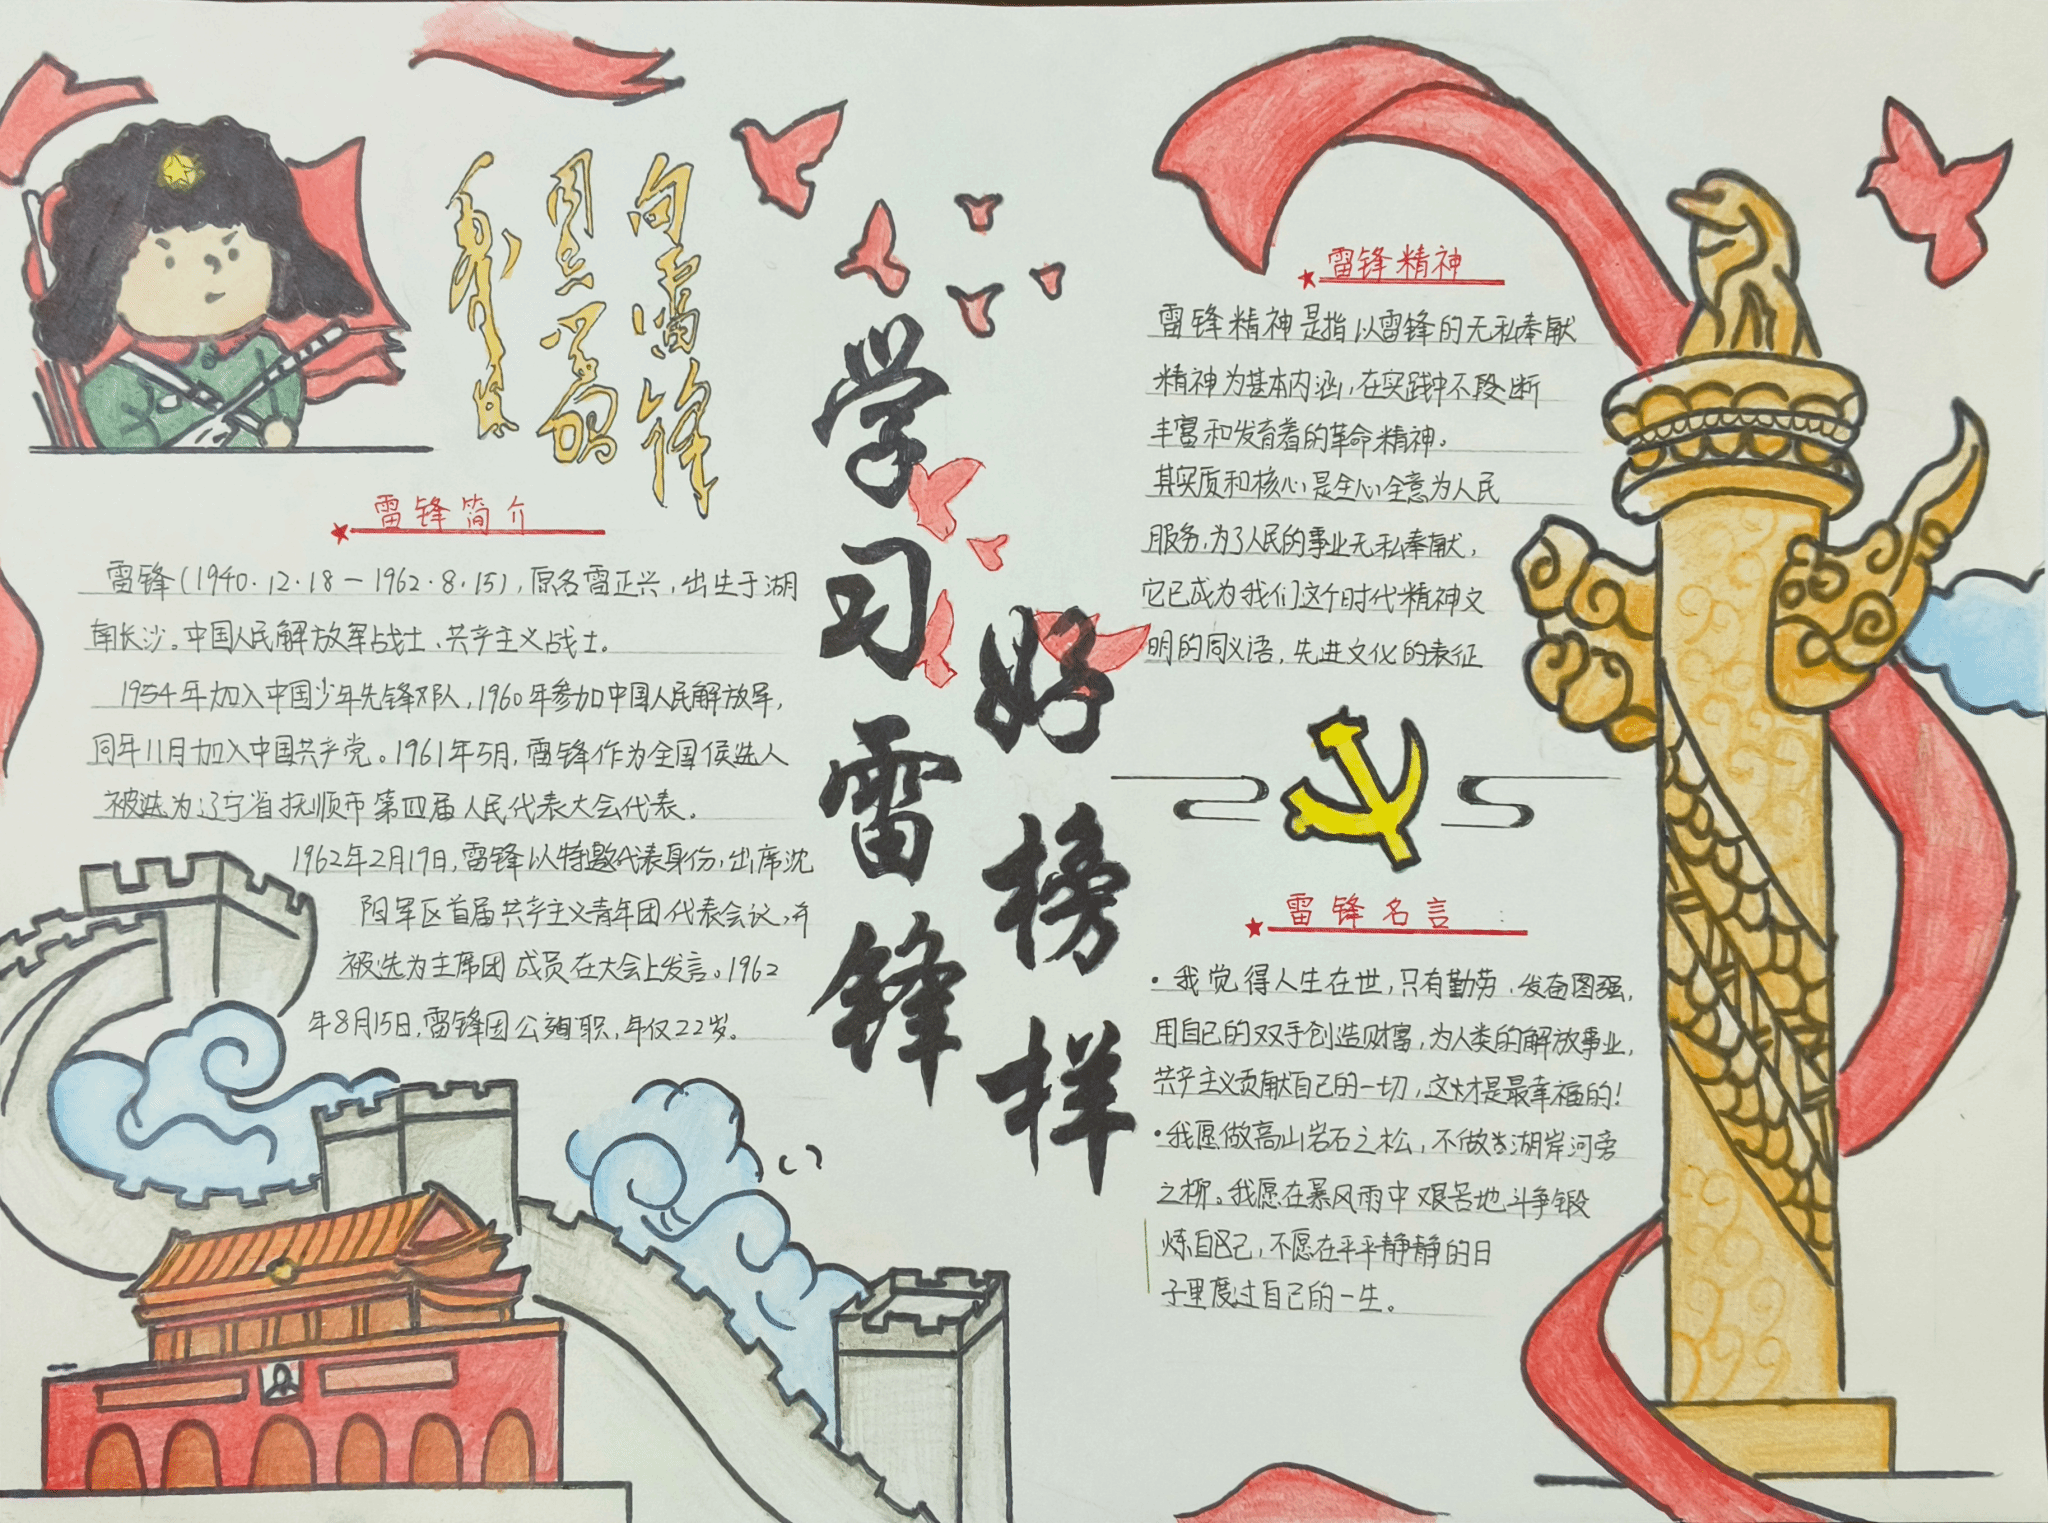 向雷锋
同志学习
毛泽东
学习雷锋
好榜样
雷锋简介
雷锋(1940.12.18—1962.8.15),原名雷正兴,出生于湖
南长沙。中国人民解放军战士、共产主义战士。
1954年加入中国少年先锋队,1960年参加中国人民解放军,
同年11月加入中国共产党。1961年5月,雷锋作为全国候选人
被选为辽宁省抚顺市第四届人民代表大会代表。
1962年2月19日,雷锋以特邀代表身份,出席沈
阳军区首届共产主义青年团代表会议,并
被选为主席团成员在大会上发言。1962
年8月15日,雷锋因公殉职,年仅22岁。
雷锋精神
雷锋精神是指以雷锋的无私奉献
精神为基本内涵,在实践中不段断
丰富和发育着的革命精神。
其实质和核心是全心全意为人民
服务,为了人民的事业无私奉献,
它已成为我们这个时代精神文
明的同义语,先进文化的表征
雷锋名言
·我觉得人生在世,只有勤劳,发奋图强,
用自己的双手创造财富,为人类的解放事业,
共产主义贡献自己的一切,这才是最幸福的!
·我愿做高山岩石之松,不做湖岸河旁
之柳。我愿在暴风雨中艰苦地斗争锻
炼自己,不愿在平平静静的日
子里度过自己的一生。